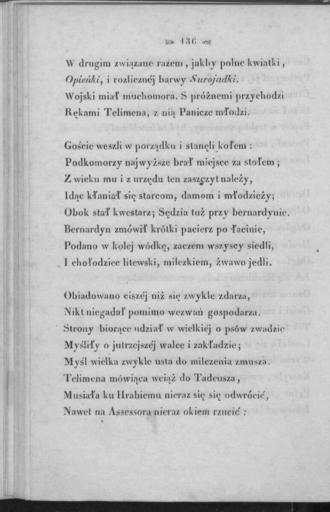 136
W drugim związane razem, jakby polne kwiatki,
Opieńki, i rozlicznéj barwy Surojadki.
Wojski miał muchomora. S próżnemi przychodzi
Rękami Telimena, z nią Panicze młodzi.
Goście weszli w porządku i stanęli kołem:
Podkomorzy najwyższe brał miejsce za stołem;
Z wieku mu i z urzędu ten zaszczyt należy,
Idąc kłaniał się starcom, damom i młodzieży;
Obok stał kwestarz; Sędzia tuż przy bernardynie.
Bernardyn zmówił krótki pacierz po łacinie,
Podano w kolej wódkę, zaczem wszyscy siedli,
I chołodziec litewski, milczkiem, żwawo jedli.
Obiadowano ciszéj niż się zwykle zdarza,
Nikt niegadał pomimo wezwań gospodarza.
Strony biorące udział w wielkiéj o psów zwadzie
Myśliły o jutrzejszéj walce i zakładzie;
Myśl wielka zwykle usta do milczenia zmusza.
Telimena mówiąca wciąż do Tadeusza,
Musiała ku Hrabiemu nieraz się się odwrócić,
Nawet na Assessora nieraz okiem rzucić: